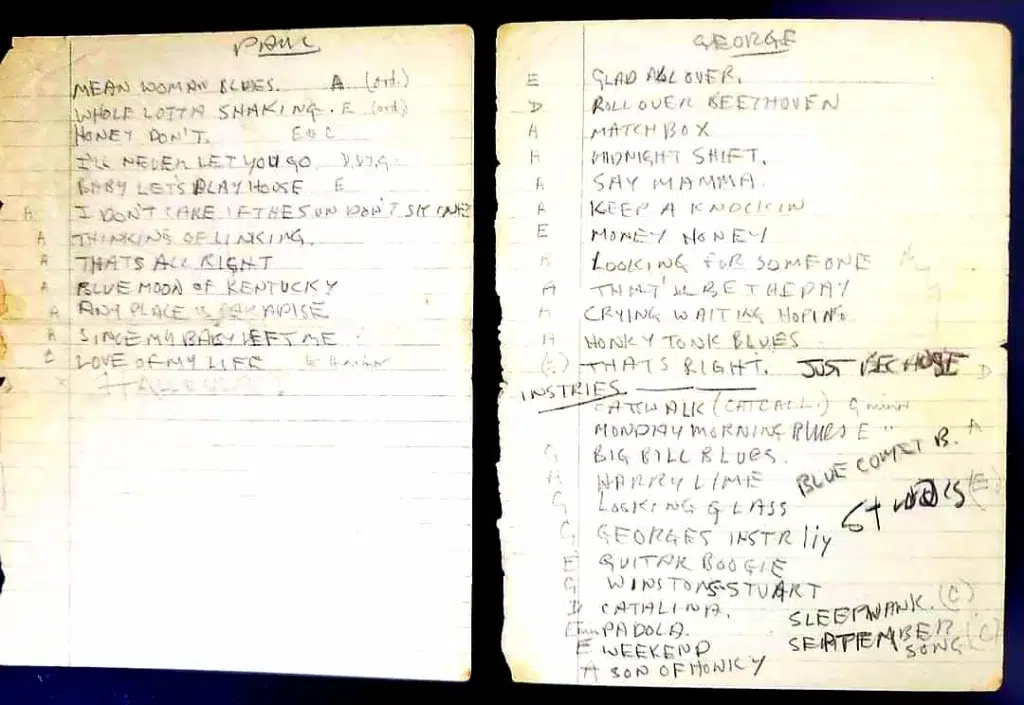 PAUL
MEAN WOMAN BLUES. A (ord.)
WHOLE LOTTA SHAKING. E (ord)
HONEY DON'T. E C
I'LL NEVER LET YOU GO
BABY LET'S PLAY HOUSE E
A I DON'T CARE IF THE SUN DON'T SHINE
A THINKING OF LINKING.
A THATS ALL RIGHT
A BLUE MOON OF KENTUCKY
A ANY PLACE IS PARADISE
A SINCE MY BABY LEFT ME
C LOVE OF MY LIFE
GEORGE
E GLAD ALL OVER.
D ROLL OVER BEETHOVEN
A MATCHBOX
A MIDNIGHT SHIFT.
A SAY MAMMA.
A KEEP A KNOCKIN
E MONEY HONEY
A LOOKING FOR SOMEONE
A THAT'LL BE THE DAY
A CRYING WAITING HOPING
A HONKY TONK BLUES
(E) THATS RIGHT. JUST BECAUSE D
INSTRIES.
CATSWALK (CATCALL.) G minor
MONDAY MORNING BLUES E " A
G BIG BILL BLUES. BLUE COMET B.
A HARRY LIME
G LOOKING GLASS (E)
G GEORGES INSTR
E GUITAR BOOGIE
G WINSTONS STUART
D CATALINA. SLEEPWANK. (C)
Emin PADOLA. SEPTEMBER SONG (C)
E WEEKEND
A SON OF HONKY